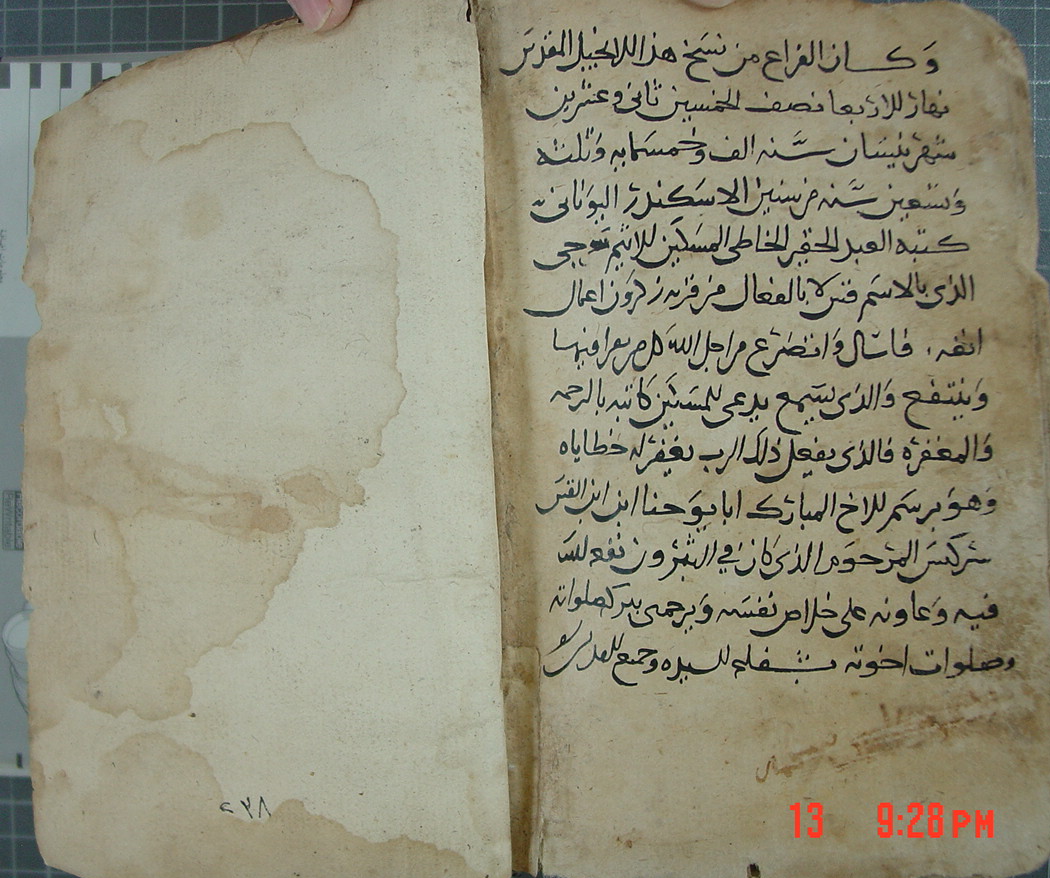 وكان الفراغ من نسخ هذا الانجيل المقدس
نهار الاربعا نصف الخمسين ثانى وعشرين
شهر نيسان سنه الف وخمسمايه وثلثه
وتسعين سنه من سنين الاسكندر اليونانى
كتبه العبد الحقير الخاطى المسكين الاثيم
الذى بالاسم قس لا بالفعال من قريه اعمال
انفه فاسال واتضرع من اجل الله كل من يقرا فيها
وينتفع والذى يسمع يدعى للمسكين كاتبه بالرحمه
والمغفره فالذى يفعل ذلك الرب يغفر له خطاياه
وهو برسم الاخ المبارك ابا يوحنا ابن ابن القس
سركيس المرحوم الذى كان فى البثرون نفعه الله
فيه وعاونه على خلاص نفسه ويرحمنى ببركة صلواته
وصلوات اخوته بشفاعة السيده وجميع القديسين
٢٣٨
13 9:28PM